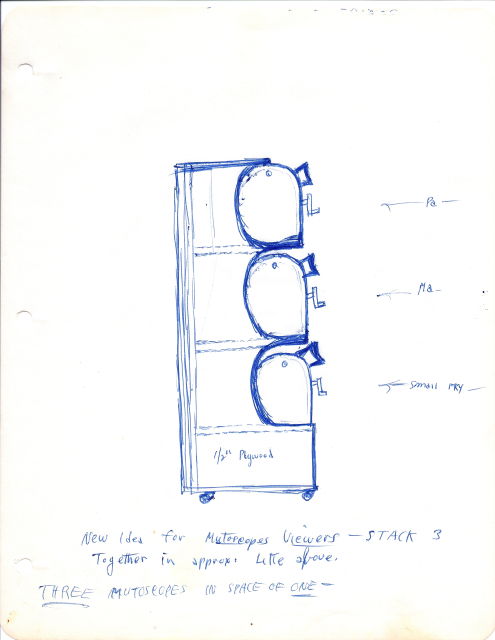 Pa —
Ma —
small FRY —
1/2" Plywood
New Idea for Mutoscopes Viewers — STACK 3
Together in approx. Like above.
THREE MUTOSCOPES IN SPACE OF ONE —